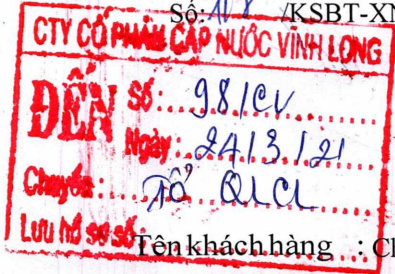 Số: /KSBT-XN
CTY CỔ PHẦN CẤP NƯỚC VĨNH LONG
ĐẾN
Số: 98/CV
Ngày: 24/3/21
Chuyển: Tổ QLCL
Lưu hồ sơ số
Tên khách hàng : Ch